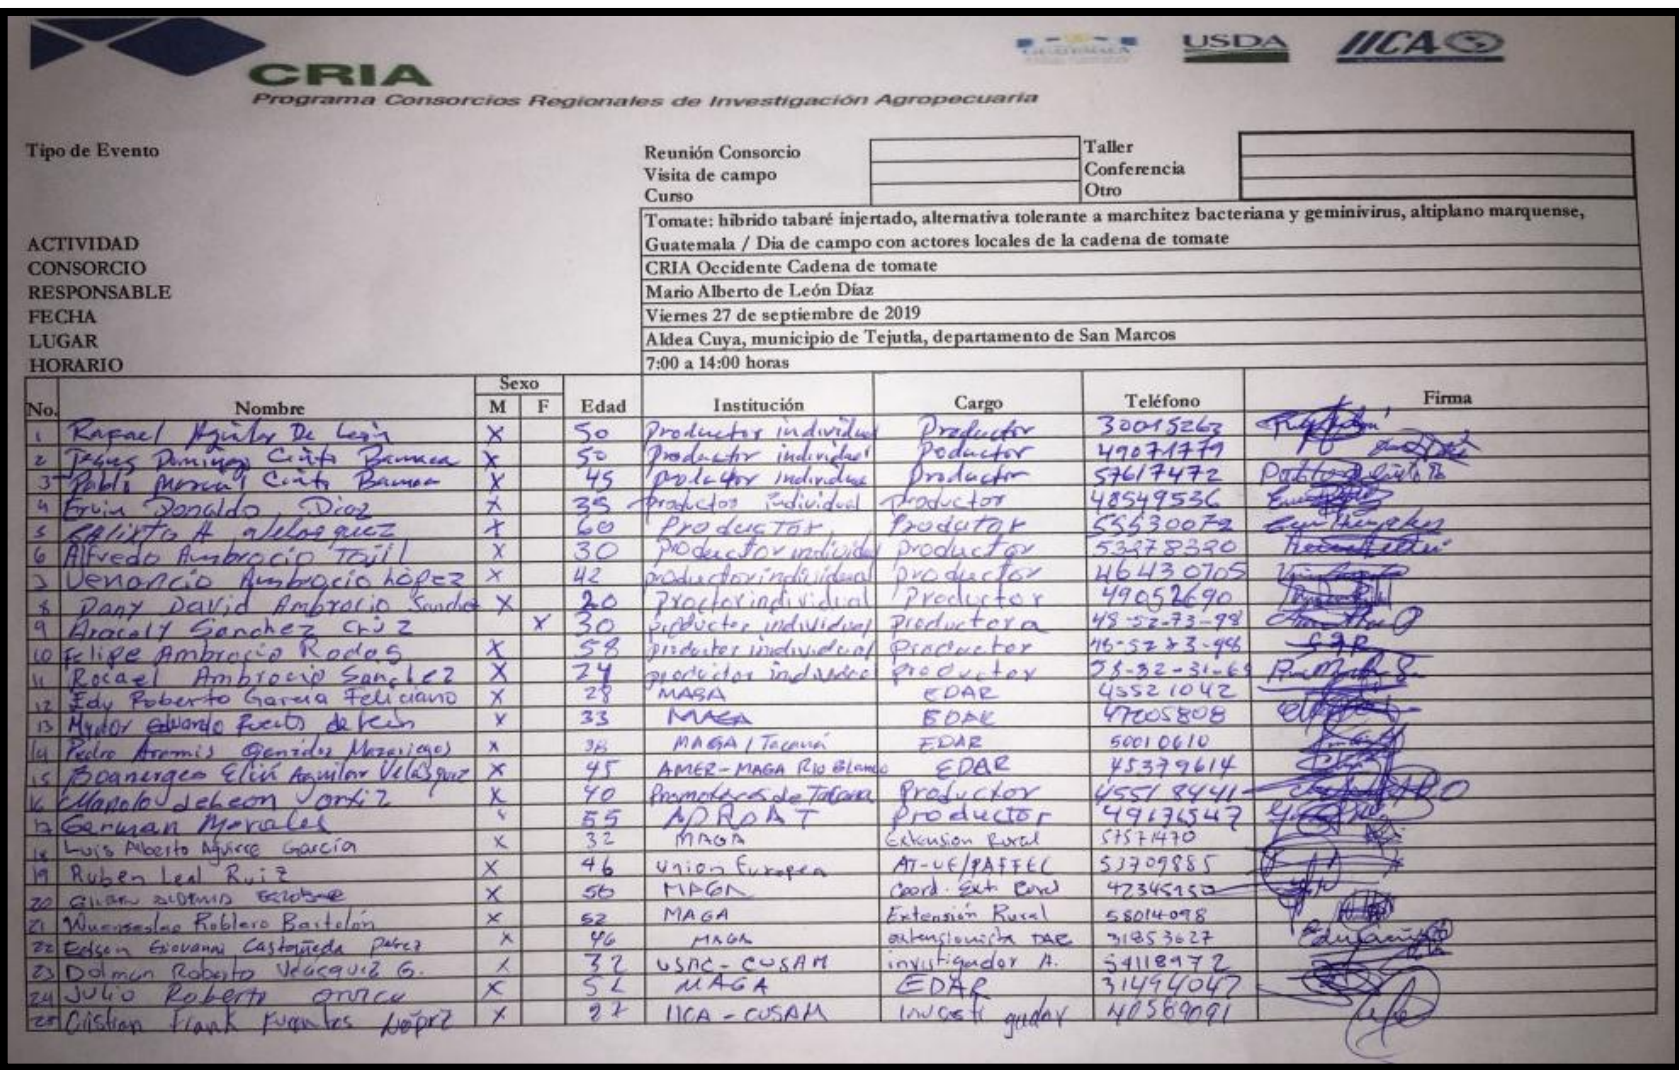 CRIA
Programa Consorcios Regionales de Investigación Agropecuaria
GUATEMALA
USDA
IICA
Tipo de Evento
Reunión Consorcio Taller
Visita de campo Conferencia
Curso Otro
ACTIVIDAD Tomate: hibrido tabaré injertado, alternativa tolerante a marchitez bacteriana y geminivirus, altiplano marquense,
Guatemala / Dia de campo con actores locales de la cadena de tomate
CONSORCIO CRIA Occidente Cadena de tomate
RESPONSABLE Mario Alberto de León Díaz
FECHA Viernes 27 de septiembre de 2019
LUGAR Aldea Cuya, municipio de Tejutla, departamento de San Marcos
HORARIO 7:00 a 14:00 horas
Sexo
No. Nombre M F Edad Institución Cargo Teléfono Firma
1 Rafael Aguilar De León X 50 Productor individual Productor 30015263
2 Domingo Cinto Bamaca X 50 Productor individual Poductor 49071779
3 Pablo Cinto Bamaca X 45 productor individual Productor 57617472
4 Ervin Donaldo Diaz X 35 productor individual productor 48549536
5 Calixto A velasquez X 60 Productor Produtor 55530072
6 Alfredo Ambrocio X 30 productor individual productor 53278320
7 Venancio Ambrocio López X 42 productor individual productor 46430705
8 Dany David Ambrocio Sanchez X 20 individual Productor 49052690
9 Aracely Sanchez Cruz X 30 productor individual Productora 48-52-73-98
10 Felipe Ambrocio Rodas X 58 productor individual Productor
11 Rocael Ambrocio Sanchez X 24 productor individual productor
12 Edy Roberto Garcia Feliciano X 28 MAGA EDAR 45521042
13 Eduardo de León X 33 MAGA EDAR 47205808
14 Pedro Aramis Mazariegos X 38 MAGA / Tacaná EDAR 50010610
15 Boanerges Aguilar Velásquez X 45 AMER-MAGA Rio Blanco EDAR 45379614
16 Manolo de Leon X 40 Productor 45518441
17 German Morales x 55 Productor
18 Luis Alberto Aguirre García X 32 MAGA Extension Rural 57571470
19 Ruben Leal Ruiz X 46 Union Europea AT-UE/PAFFEC 53709885
20 X 50 MAGA Coord. Ext. Rural
21 Roblero Bartolón X 52 MAGA Extensión Rural 58014098
22 Edson Giovanni Castañeda Perez X 46 MAGA extensionista 31853627
23 Roberto Velasquez G. X 32 USAC - CUSAM investigador A. 54118972
24 Julio Roberto X 52 MAGA EDAR 31494047
25 Cristian Frank Fuentes López X 27 IICA - CUSAM investigador 40589091